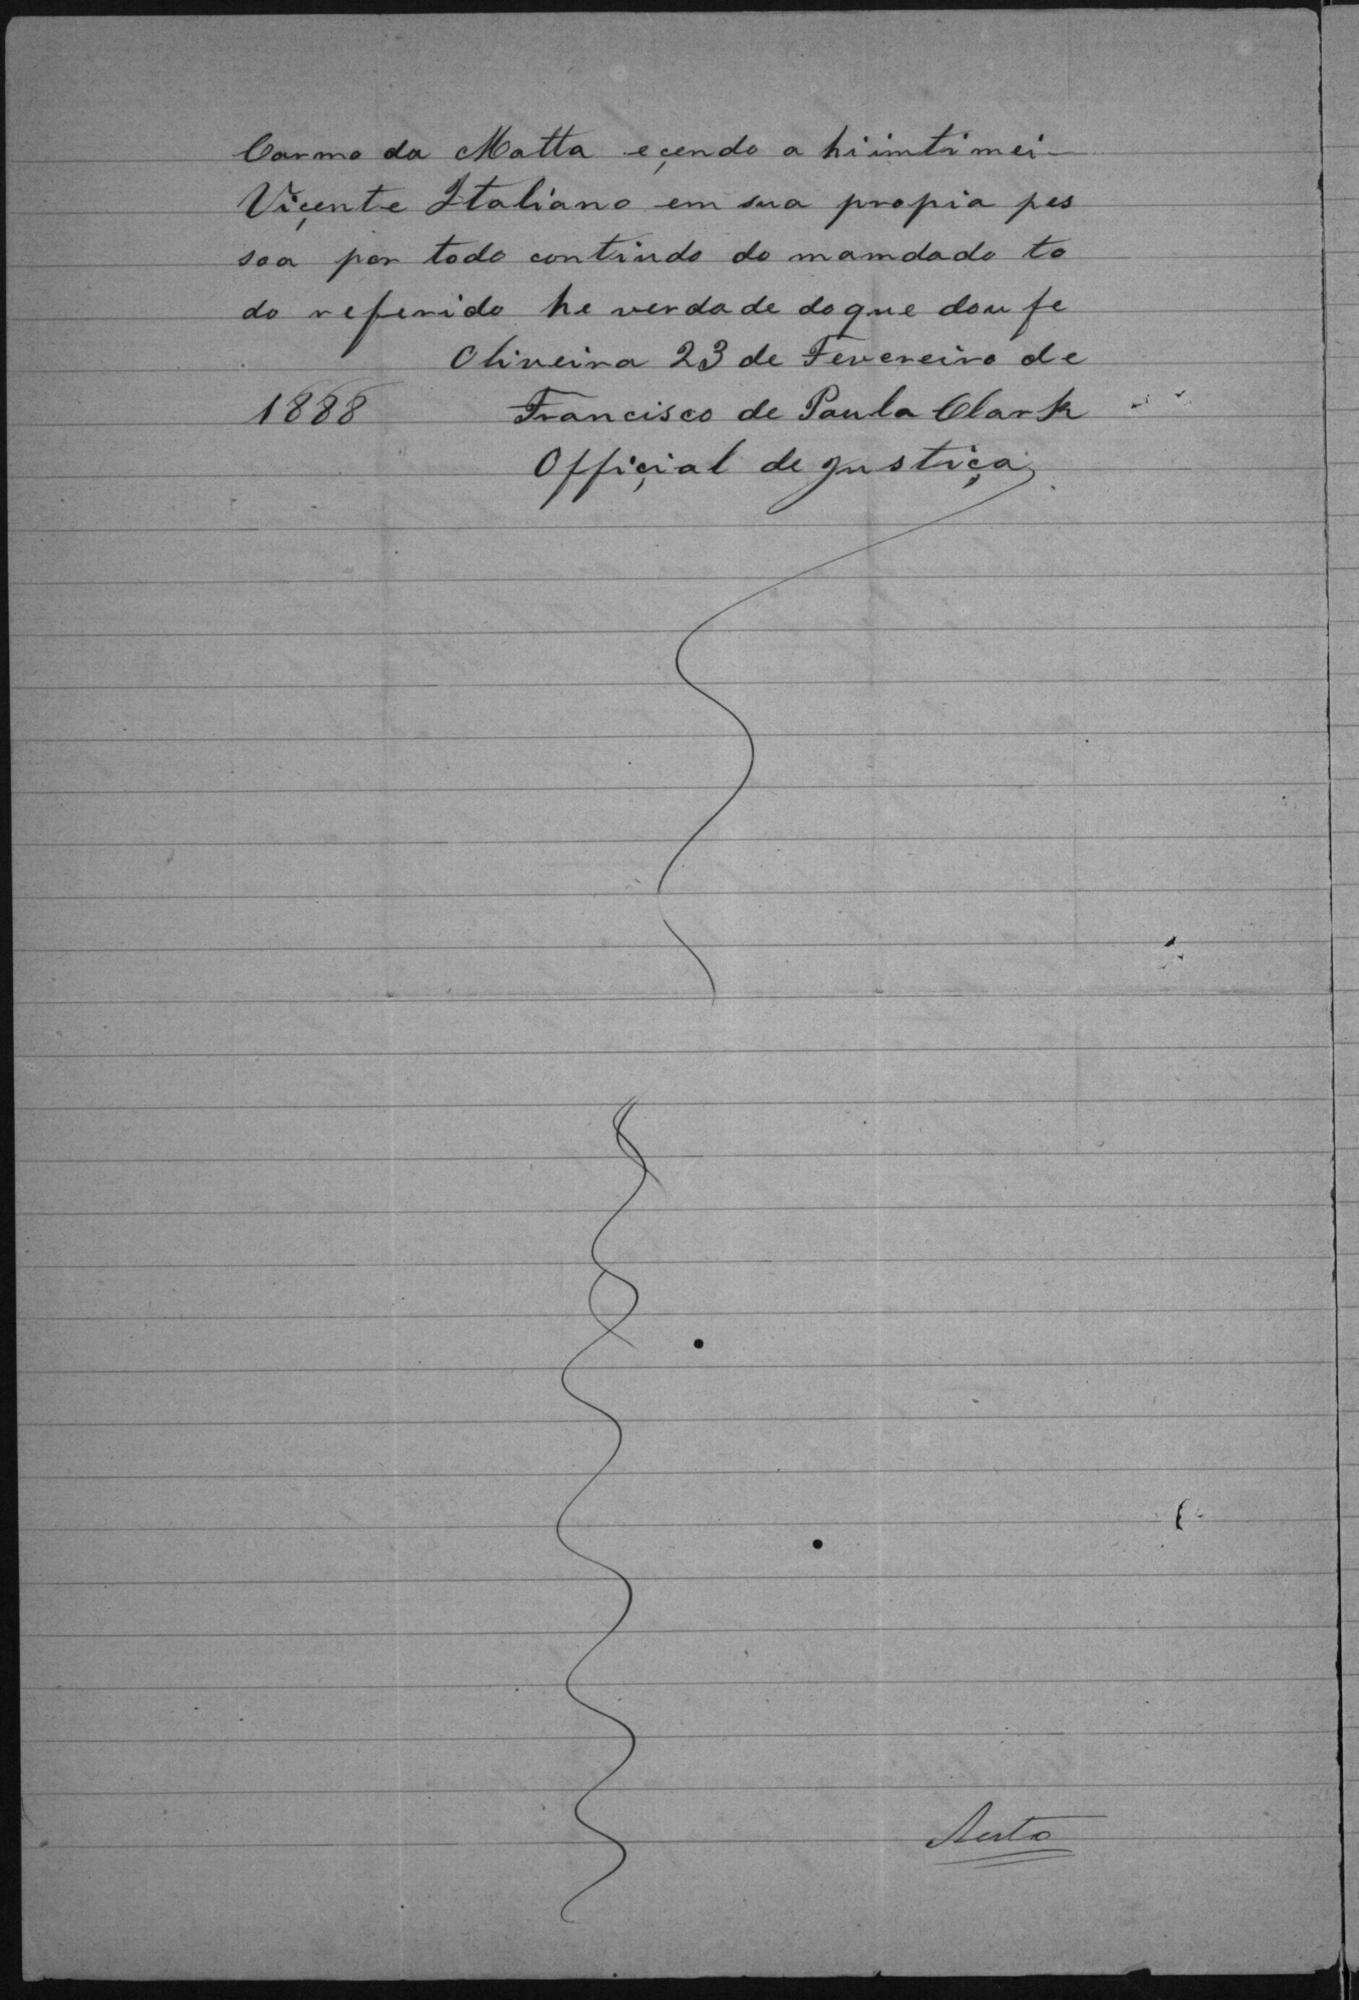 Carmo da Matta eçendo a hi imtimei
Viçente Italiano em sua propia pes
soa por todo contiudo do mamdado to
do referido he verdade do que dou fe
Oliveira 23 de Fevereiro de
1888 Francisco de Paula Clark
Offiçial de Justiça